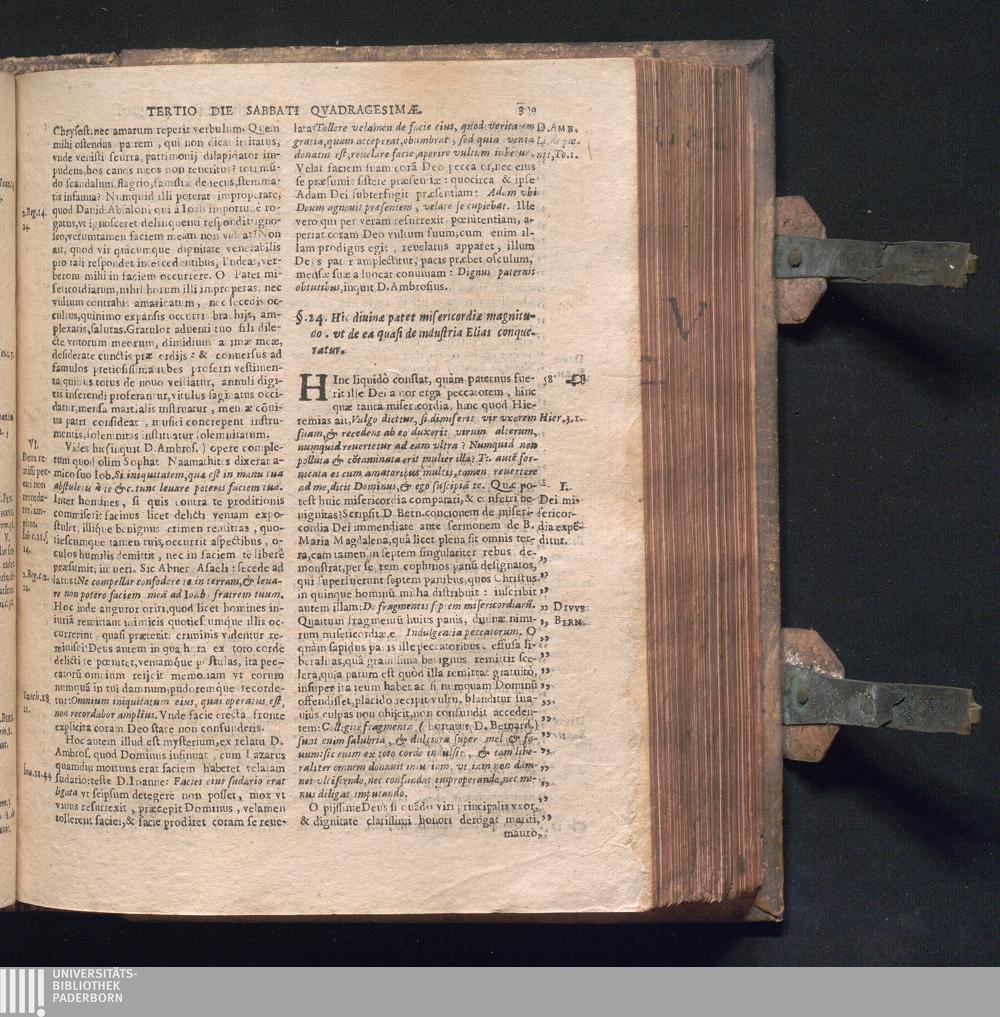 TERTIO DIE SABBATI QVADRAGESIMÆ.
Chrysost. nec amarum reperit verbulum. Quem
mihi ostendas patrem, qui non dicat irritatus,
vnde venisti scurra, patrimonij dilapidator im-
pudens, hos canos meos non reueritus? totī mū-
do scandalum, flagrio, familiæ dedecus, stemma-
tis infamia? Numquid illi poterat improperare,
quod Dauid Absaloni qui à Ioab importunè ro-
gatus, vt ignosceret delinquenti respondit: igno-
sco, verumtamen faciem meam non videat? Non
ait, quod vir quicumque dignitate venerabilis
pro tali respondet intercedentibus, Pudeat, ver-
beroni mihi in faciem occurrere. O Pater mi-
sericordiarum, nihil horum illi improperas, nec
vultum contrahis amaricatum, nec secedis oc-
cultus, quinimo expansis occurris brachijs, am-
plexatis, salutas. Gratulor aduentui tuo fili dile-
cte votorum meorum, dimidium animæ meæ,
desiderate cunctis præcordijs: & conuersus ad
famulos pretiosissima iubes proferri vestimen-
ta, quibus totus de nouo vestiatur, annuli digi-
tis inserendi proferantur, vitulus saginatus occi-
datur, mensa martialis instruatur, mensæ cōui-
ua patri consideat, musici concrepent instru-
mentis, solemnitas instituatur solemnitatum.
Vides hic (inquit D. Ambros.) opere comple-
tum quod olim Sophar Naamathites dixerat a-
mico suo Iob, Si iniquitatem, quæ est in manu tua
abstuleris à te &c. tunc leuare poteris faciem tuā.
Inter homines, si quis contra te proditionis
commiserit facinus licet delicti veniam expo-
stulet, illique benignus crimen remittas, quo-
tiescumque tamen tuis, occurrit aspectibus, o-
culos humilis demittit, nec in faciem te liberè
præsumit intueri. Sic Abner Asaeli: secede ad
latus: Ne compellar confodere te in terram, & leua-
re non potero faciem meā ad Ioab fratrem tuum.
Hoc inde auguror oriri, quod licet homines in-
iuriā remittant inimicis quotiescumque illis oc-
currerint, quasi præteriti criminis videntur re-
minisci: Deus autem in qua hora ex toto corde
delicti te pœnitet, veniamque postulas, ita pec-
catorū omnium reijcit memoriam vt eorum
numquā in tui damnum, pudoremque recorde-
tur: Omnium iniquitatum eius, quas operatus est,
non recordabor amplius. Vnde facie erecta, fronte
explicita coram Deo stare non confunderis.
Hoc autem illud est mysterium, ex relatu D.
Ambros. quod Dominus insinuat, cum Lazarus
quamdiu mortuus erat faciem haberet velatam
sudario: teste D. Ioanne: Facies eius sudario erat
ligata vt seipsum detegere non posset, mox vt
viuus resurrexit, præcepit Dominus, velamen
tollerent faciei, & facie prodiret coram se reue-
2. Reg. 14.
24.
VI.
2. Reg. c. 2.
22.
Ezech. 18
22.
Ioa. 11. 44
lata: Tollere velamen de facie eius, quod veritatem
gratia, quam acceperat, obumbrat; sed quia venia
donatus est, reuelare facie, aperire vultum iubetur.
Velat faciem suam corā Deo peccator, nec eius
se præsumit sistere præsentiæ: quocirca & ipse
Adam Dei subterfugit præsentiam: Adam vbi
Deum agnouit præsentem, velare se cupiebat. Ille
vero qui per veram resurrexit pœnitentiam, a-
periat coram Deo vultum suum, cum enim il-
lam prodigus egit, reuelatus apparet, illum
Deus pater amplectitur, pacis præbet osculum,
mensæ suæ aduocat conuiuam: Dignus paternis
obtutibus, inquit D. Ambrosius.
§. 24. Hic diuinæ patet misericordiæ magnitu-
do. vt de ea quasi de industria Elias conque-
ratur.
HInc liquidò constat, quàm paternus fue-
rit ille Dei amor erga peccatorem, hinc
quæ tanta misericordia, hinc quod Hie-
remias ait, Vulgo dicitur, si dimiserit vir vxorem
suam, & recedens ab eo duxerit virum alterum,
numquid reuertetur ad eam vltra? Numquid non
polluta & cōtaminata erit mulier illa? Tu autē for-
nicata es cum amatoribus multis, tamen reuertere
ad me, dicit Dominus, & ego suscipiā te. Quæ po-
test huic misericordia comparari, & conferri be-
nignitas? Scripsit D. Bern. concionem de miseri-
cordia Dei immediate ante sermonem de B.
Maria Magdalena, quà licet plena sit omnis ter-
ra, eam tamen in septem singulariter rebus de-
monstrat, per septem cophinos panū designatos,
qui superfuerunt septem panibus, quos Christus
in quinque hominū millia distribuit: inscribit
autem illam: De fragmentis septem misericordiarū.
Quantum fragmentū huius panis, diuinæ nimi-
rum misericordiæ, est Indulgentia peccatorum. O
quàm sapidus panis ille peccatoribus, effusa li-
beralitas, quâ gratissima benignus remittit sce-
lera, quia parum est quòd illa remittat gratuitò,
insuper ita reum habet ac si numquam Dominū
offendisset, placido recipit vultu, blanditur sua-
uius culpas non obijcit, non confundit acceden-
tem: Colligite fragmenta (hortatur D. Bernard.)
sunt enim salubria, & dulciora super mel & fa-
uum: sic enim ex toto corde indulsit, & tam libe-
raliter omnem donauit iniuriam, vt iam non dam-
net vlciscendo, nec confundat improperando, nec mi-
nus diligat imputando.
O pijssime Deus si quādo viri principalis vxor,
& dignitate clarissimi honori derogat mariti,
mauro,
D. AMB.
58
Hier. 3. 1.
E.
Dei mi-
sericor-
dia expē-
ditur.
DIVVS
BERN.
V
UNIVERSITÄTS-
BIBLIOTHEK
PADERBORN